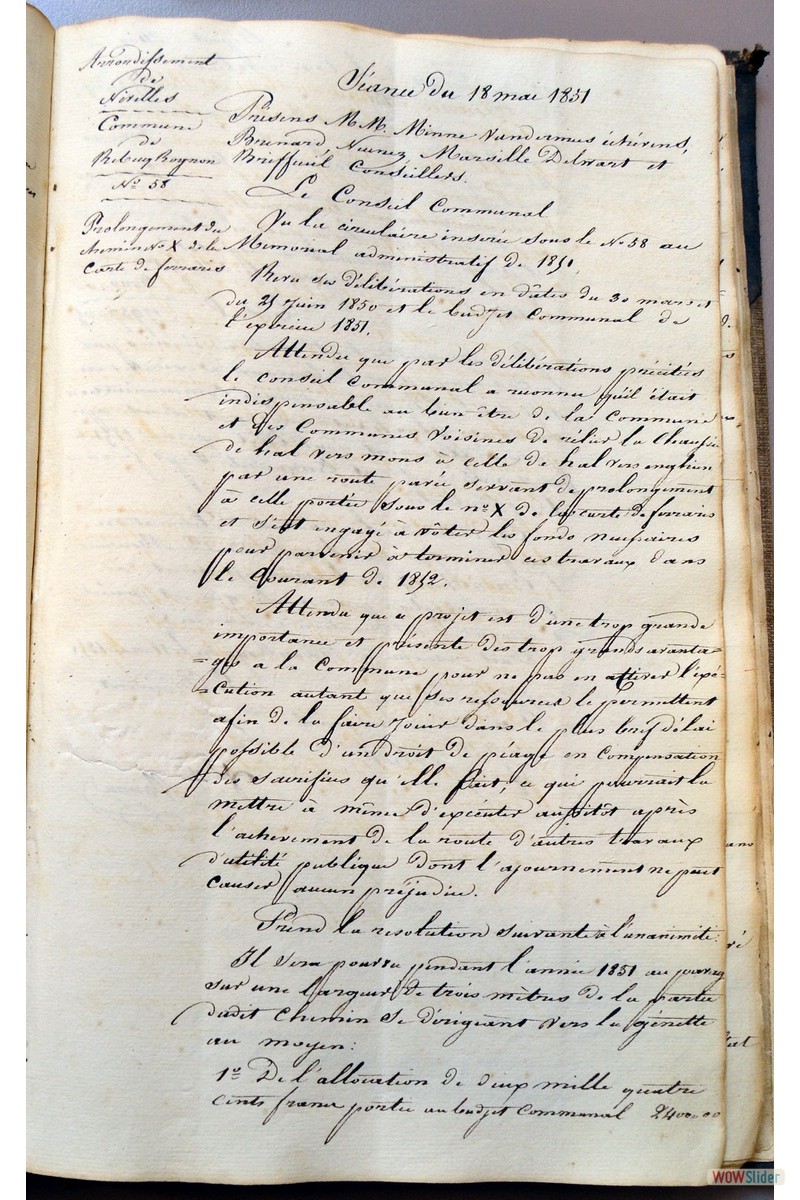 Arrondissement
de
Nivelles
Commune
de
Rebecq Rognon
No 58
Prolongement du
chemin No X de la
Carte de ferraris
Séance du 18 mai 1851
Présens M.M. Minne Vandermus échévins,
Brenard, Neunez, Marsille Delwart et
Brieffeuil Conseillers.
Le Conseil Communal
Vu la circulaire insérée sous le No 58 au
Mémorial administratif de 1851,
Revu ses délibérations en dâtes du 30 mars et
du 25 juin 1850 et le budjet Communal de
l'exercice 1851.
Attendu que par les délibérations précitées
le conseil Communal a reconnu qu'il était
indispensable au bien être de la Commune
et des Communes Voisines de rélier la Chaussée
de hal vers mons à celle de hal vers enghien
par une route pavée servant de prolongement
à celle portée sous le no X de la carte de ferraris
et s'est engagé à vôter les fonds nécessaires
pour parvenir à terminer ces travaux dans
le Courant de 1852.
Attendu que ce projet est d'une trop grande
importance et présente des trop grands avanta=
=ges a la Commune pour ne pas en attirer l'exé=
=cution autant que ses ressources le permettent
afin de la faire jouir dans le plus bref délai
possible d'un droit de péage en compensation
des sacrifices qu'elle fait, ce qui pourrait la
mettre à même d'exécuter aussitôt après
l'achevement de la route d'autres travaux
d'utilité publique dont l'ajournement ne peut
causer aucun préjudice.
Prend la résolution suivante à l'unanimité:
Il sera pourvu pendant l'année 1851 au pavage
sur une largeur de trois mètres de la partie
dudit Chemin se dirigeant vers la génette
au moyen:
1o De l'allocation de deux mille quatre
cents francs portée au budjet Communal 2400 00
WOWSlider